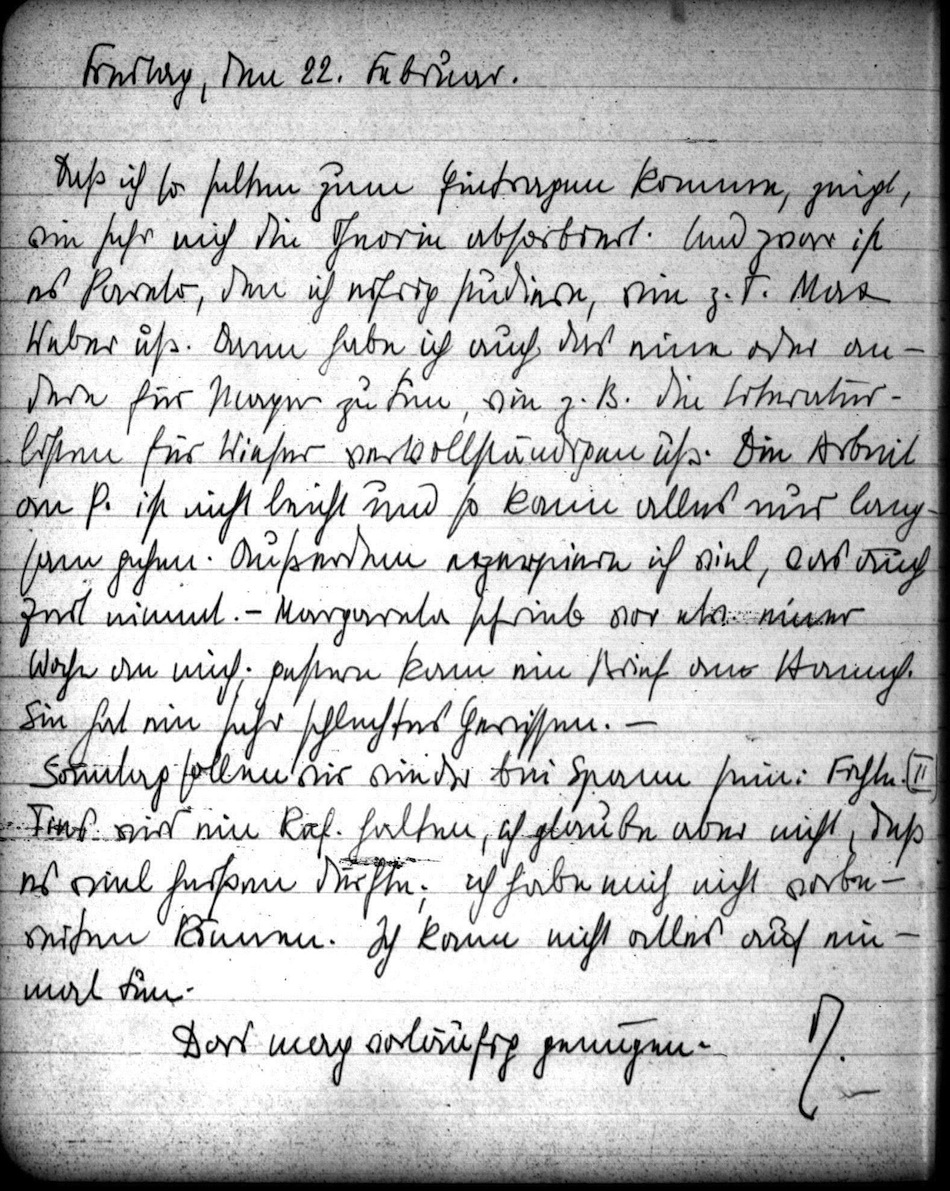 Freitag, den 22. Februar.
Daß ich so selten zum Eintragen komme, zeigt,
wie sehr mich die Theorie absorbiert. Und zwar ist
es Pareto, den ich eifrig studiere, wie z. T. Max
Weber usf. Dann habe ich auch das eine oder an-
dere für Mayer zu tun, wie z. B. die Literatur-
listen für Wieser vervollständigen usf. Die Arbeit
an P. ist nicht leicht und so kann alles nur lang-
sam gehen. Außerdem exzerpiere ich viel, das auch
Zeit nimmt. – Margareta schrieb vor etw. einer
Woche an mich; gestern kam ein Brief aus
Sie hat ein sehr schlechtes Gewissen. –
Sonntag sollen wir wieder bei Spann sein: Fichte. II
wird ein Ref. halten, ich glaube aber nicht, daß
es viel heißen dürfte; ich habe mich nicht vorbe-
reiten können. Ich kann nicht alles auf ein-
mal tun.
Das mag vorläufig genügen.